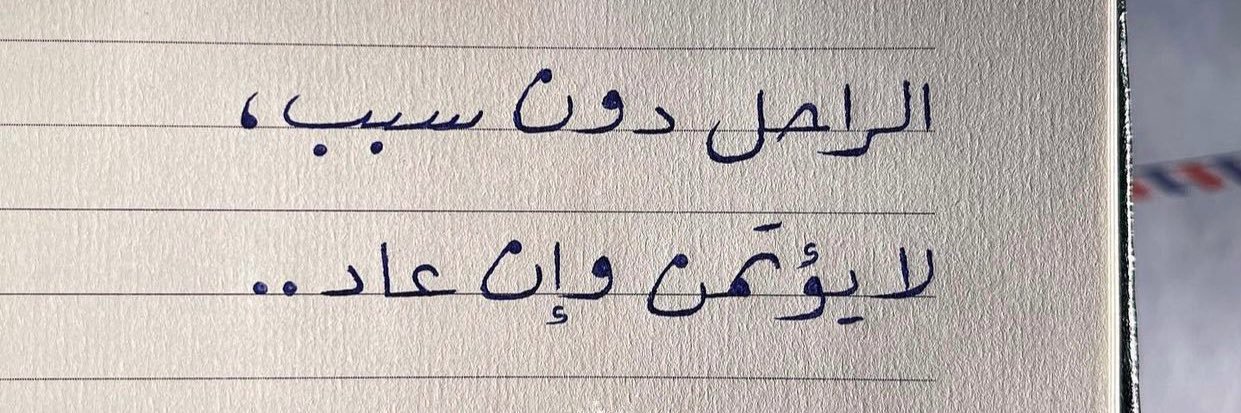 الراحل دون سبب،
لا يؤتمن وإن عاد..